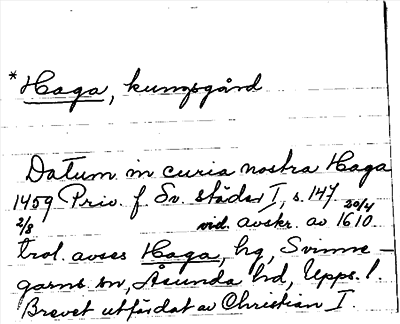 * Haga, kungsgård
Datum in curia nostra Haga
1459 Priv. f. Sv. städer I, s. 147.
2/8 vid. avskr. av 30/4 1610.
trol. avses Haga, hg, Svinne-
garns sn, Åsunda hd, Upps. l.
Brevet utfärdat av Christian I.